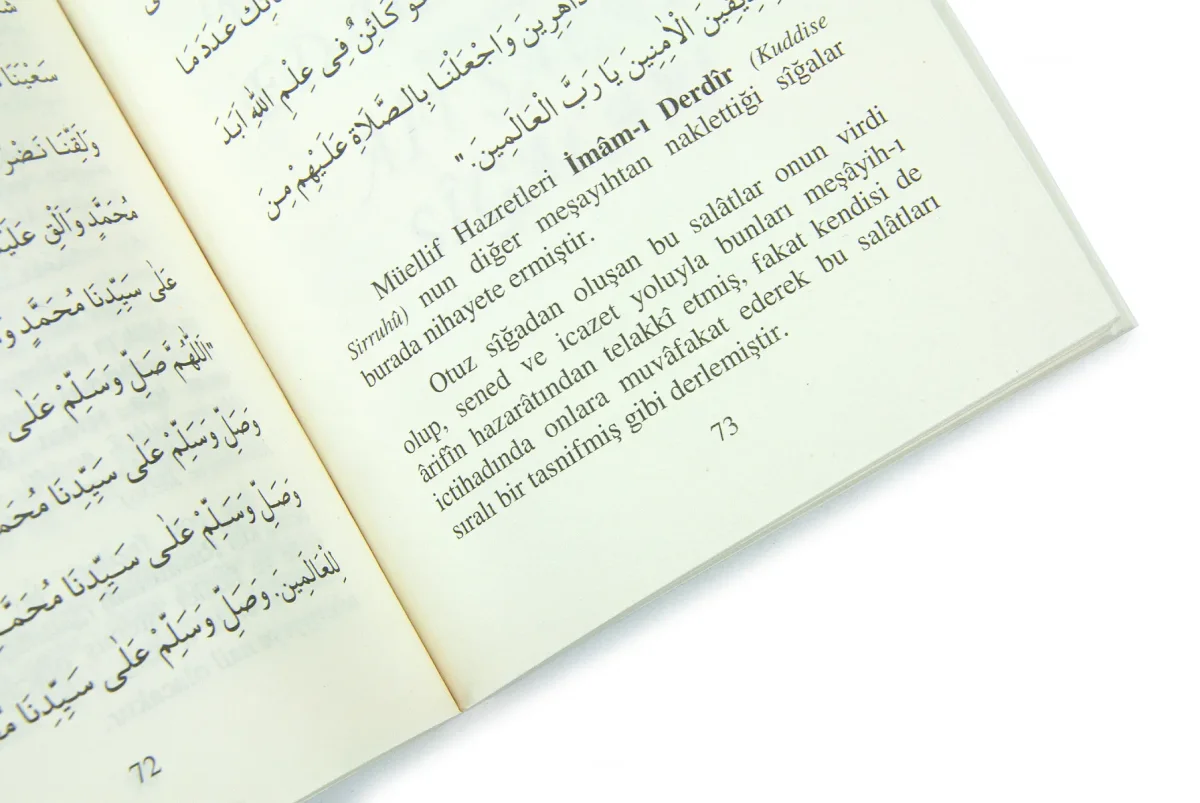 سَعْيَنَا
وَلَقِّنَا نَضْرَ
مُحَمَّدٍ وَأَلْقِ عَلَيْ
عَلٰى سَيِّدِنَا مُحَمَّدٍ وَ
"اَللّٰهُمَّ صَلِّ وَسَلِّمْ عَلٰى
وَصَلِّ وَسَلِّمْ عَلٰى سَيِّدِنَا مُحَمَّ
وَصَلِّ وَسَلِّمْ عَلٰى سَيِّدِنَا مُحَمَّ
لِلْعَالَمِينَ. وَصَلِّ وَسَلِّمْ عَلٰى سَيِّدِنَا
72
عَدَدَ مَا
كَائِنٌ فِى عِلْمِ اللّٰهِ اَبَدَ
وَاجْعَلْنَا بِالصَّلَاةِ عَلَيْهِمْ مِنَ
الْاٰمِنِينَ يَا رَبَّ الْعَالَمِينَ."
Müellif Hazretleri İmâm-ı Derdîr (Kuddise
Sirruhû) nun diğer meşayıhtan naklettiği sîğalar
burada nihayete ermiştir.
Otuz sîğadan oluşan bu salâtlar onun virdi
olup, sened ve icazet yoluyla bunları meşâyih-ı
ârifîn hazarâtından telakkî etmiş, fakat kendisi de
ictihadında onlara muvâfakat ederek bu salâtları
sıralı bir tasnifmiş gibi derlemiştir.
73